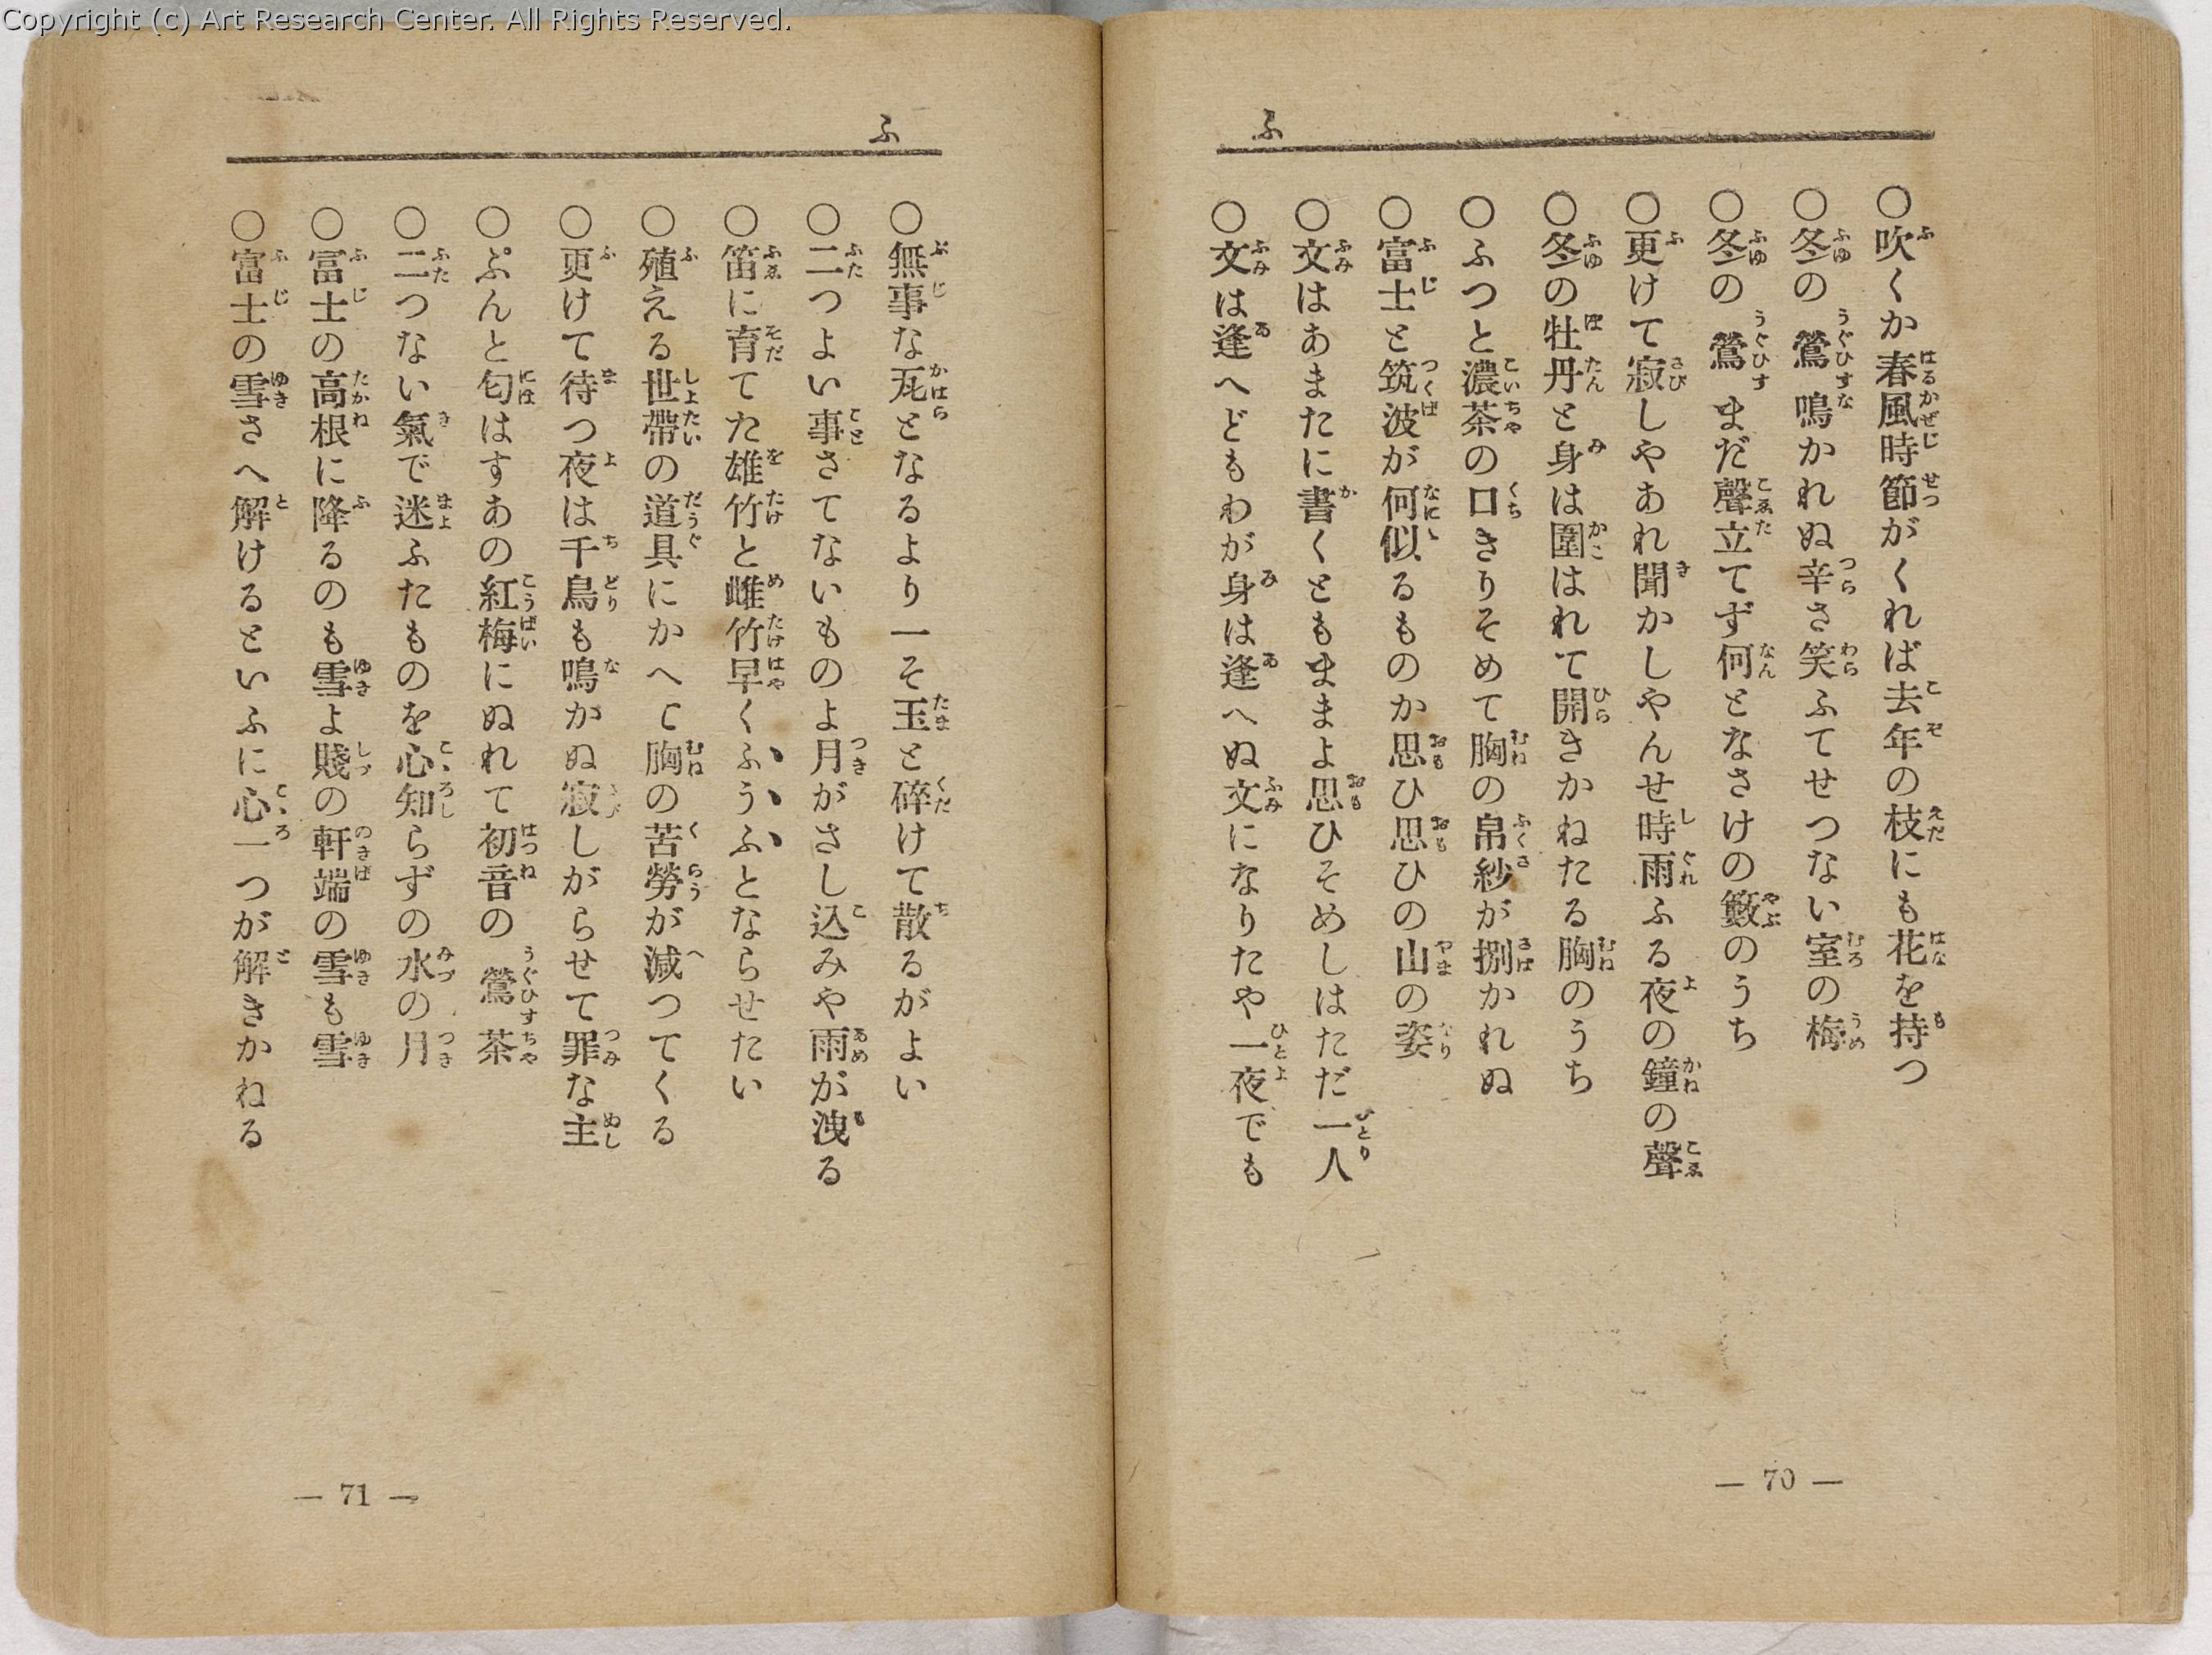 Copyright (c) Art Research Center. All Rights Reserved.
ふ
〇吹くか春風時節がくれば去年の枝にも花を持つ
〇冬の鶯鳴かれぬ辛さ笑ふてせつない室の梅
〇冬の鶯まだ聲立てず何となさけの籔のうち
〇更けて寂しやあれ聞かしやんせ時雨ふる夜の鐘の聲
〇冬の牡丹と身は圍はれて開きかねたる胸のうち
〇ふつと濃茶の口きりそめて胸の帛紗が捌かれぬ
〇富士と筑波が何似るものか思ひ思ひの山の姿
〇文はあまたに書くともままよ思ひそめしはただ一人
〇文は逢へどもわが身は逢へぬ文になりたや一夜でも
— 70 —
ふ
〇無事な瓦となるより一そ玉と碎けて散るがよい
〇二つよい事さてないものよ月がさし込みや雨が洩る
〇笛に育てた雄竹と雌竹早くふうふとならせたい
〇殖える世帶の道具にかへて胸の苦勞が減つてくる
〇更けて待つ夜は千鳥も鳴かぬ寂しがらせて罪な主
〇ぷんと匂はすあの紅梅にぬれて初音の鶯茶
〇二つない氣で迷ふたものを心知らずの水の月
〇富士の高根に降るのも雪よ賤の軒端の雪も雪
〇富士の雪さへ解けるといふに心一つが解きかねる
— 71 —